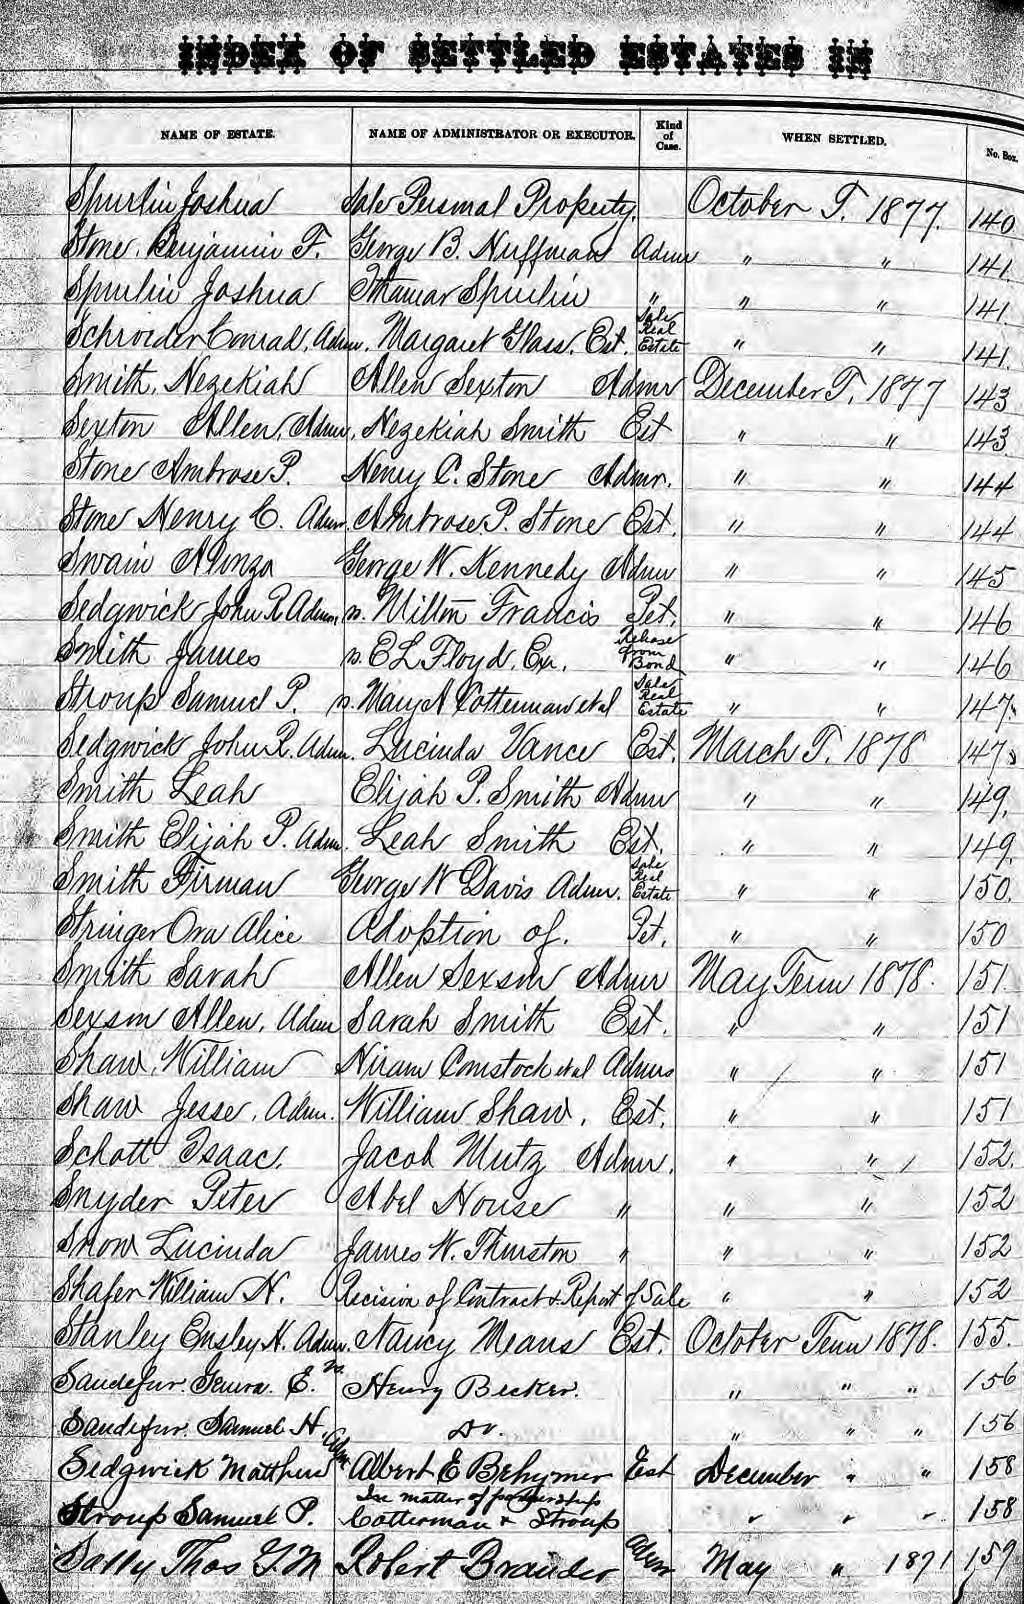 INDEX OF SETTLED ESTATES IN
NAME OF ESTATE. NAME OF ADMINISTRATOR OR EXECUTOR. Kind of Case. WHEN SETTLED. No. Box.
Spurlin Joshua Sale Personal Property. October T. 1877. 140
Stone, Benjamin F. George B. Huffman Admr " " 141.
Spurlin Joshua Thamar Spurlin " " " 141.
Schroeder Conrad, Admr. Margaret Glass, Est. Sale Real Estate " " 141.
Smith, Hezekiah Allen Sexton Admr December T. 1877 143
Sexton Allen, Admr, Hezekiah Smith Est " " 143
Stone Ambrose P. Henry C. Stone Admr. " " 144
Stone Henry C. Admr. Ambrose P. Stone Est. " " 144
Swain Alonzo George W. Kennedy Admr " " 145
Sedgwick John R Admr, vs. Milton Francis Pet. " " 146
Smith James vs. E L Floyd, Exr. Release from Bond " " 146
Stroup Samuel P. vs. Mary A Cotterman et al Sale Real Estate " " 147
Sedgwick John R. Admr. Lucinda Vance Est. March T. 1878 147
Smith Leah Elijah P. Smith Admr " " 149.
Smith Elijah P. Admr. Leah Smith Est. " " 149.
Smith Firman George W Davis Admr. Sale Real Estate " " 150.
Stringer Ora Alice Adoption of. Pet. " " 150
Smith Sarah Allen Sexson Admr May Term 1878. 151
Sexson Allen, Admr Sarah Smith Est. " " 151
Shaw, William Hiram Comstock et al Admrs " " 151
Shaw Jesse, Admr. William Shaw, Est. " " 151
Schott Isaac. Jacob Mutz Admr. " " 152.
Snyder Peter Abel House " " " 152
Snow Lucinda James W. Thurston " " " 152
Shafer William H. Recision of Contract & Report of Sale " " 152
Stanley Ensley H. Admr. Nancy Means Est. October Term 1878. 155.
Sandefur. E. vs. Henry Becker. " " " 156
Sandefur. Samuel H. Do. " " " 156
Sedgwick Matthew Adm Albert E Behymer Est December " " 158
Stroup Samuel P. In matter of partnership Cotterman & Stroup " " " 158
Sally Thos G. M Robert Brander Adm May " 1871 159